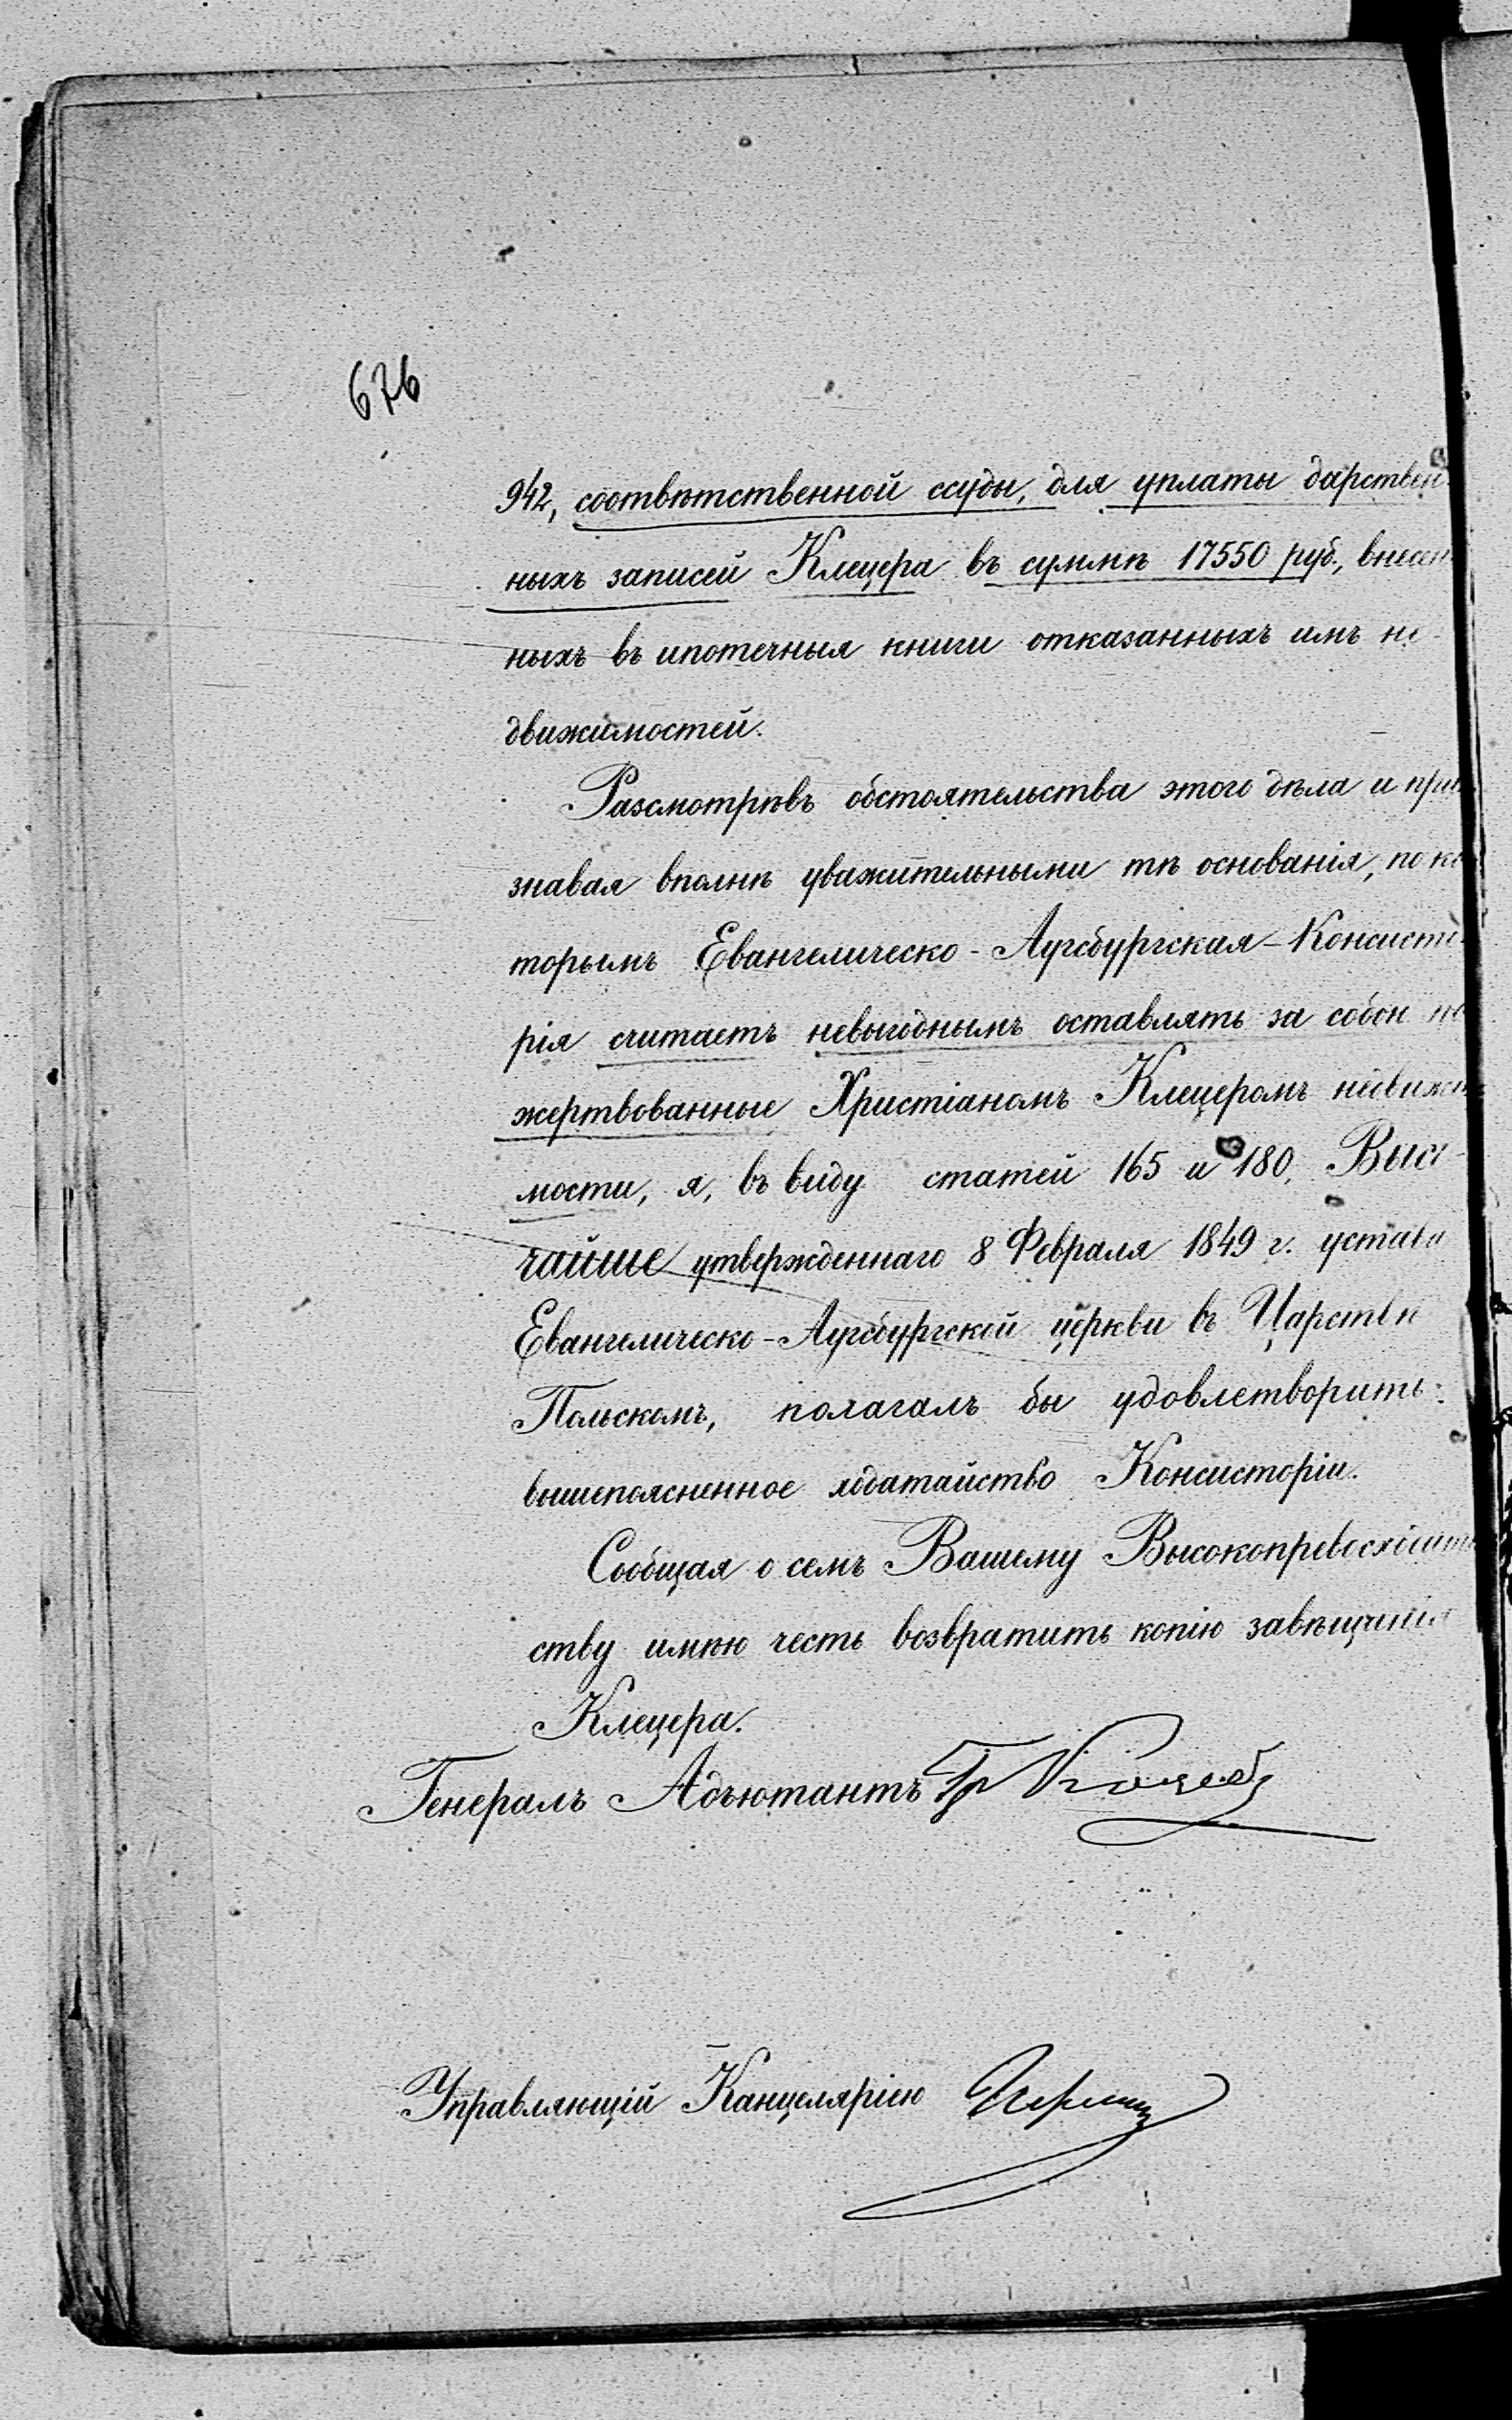 676
942, соотвѣтственной ссуды, для уплаты дарствен
ныхъ записей Клецера въ суммѣ 17550 руб., внесен
ныхъ въ ипотечныя книги отказанныхъ имъ не-
движимостей.
Разсмотрѣвъ обстоятельства этого дѣла и при
знавая вполнѣ уважительными тѣ основанія, по ко
торымъ Евангелическо-Аугсбургская-Консисто
рія считаетъ невыгоднымъ оставлять за собою по
жертвованные Христіаномъ Клецеромъ недвижи
мости, я, въ виду статей 165 и 180, Высо-
чайше утвержденнаго 8 Февраля 1849 г. устава
Евангелическо-Аугсбургской церкви въ Царствѣ
Польскомъ, полагалъ бы удовлетворить
вышепоясненное ходатайство Консисторіи.
Сообщая о семъ Вашему Высокопревосходитель
ству имѣю честь возвратить копію завѣщанія
Клецера.
Генералъ Адъютантъ
Управляющій Канцеляріею